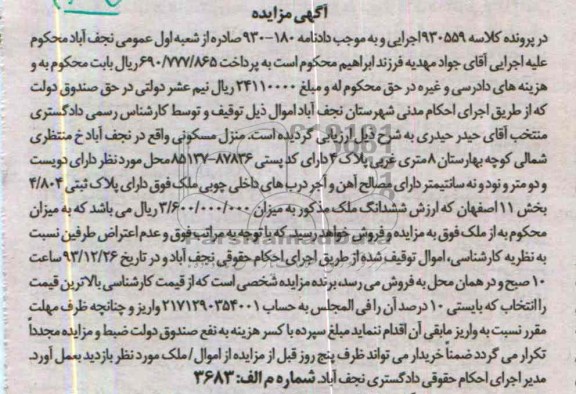 آگهی مزایده
در پرونده کلاسه ۹۳۰۵۵۹ اجرایی و به موجب دادنامه ۱۸۰-۹۳۰ صادره از شعبه اول عمومی نجف آباد محکوم
علیه اجرایی آقای جواد مهدیه فرزند ابراهیم محکوم است به پرداخت ۶۹۰/۷۷۷/۸۶۵ ریال بابت محکوم به و
هزینه های دادرسی و غیره در حق محکوم له و مبلغ ۲۴۱۱۰۰۰۰ ریال نیم عشر دولتی در حق صندوق دولت
که از طریق اجرای احکام مدنی شهرستان نجف آباد اموال ذیل توقیف و توسط کارشناس رسمی دادگستری
منتخب آقای حیدر حیدری به شرح ذیل ارزیابی گردیده است. منزل مسکونی واقع در نجف آباد خ منتظری
شمالی کوچه بهارستان ۸ متری غربی پلاک ۴ دارای کد پستی ۸۷۸۳۶-۸۵۱۳۷ محل مورد نظر دارای دویست
و دو متر و نود و نه سانتیمتر دارای مصالح آهن و آجر درب های داخلی چوبی ملک فوق دارای پلاک ثبتی ۴/۸۰۴
بخش ۱۱ اصفهان که ارزش ششدانگ ملک مذکور به میزان ۳/۶۰۰/۰۰۰/۰۰۰ ریال می باشد که به میزان
محکوم به از ملک فوق به مزایده و فروش خواهد رسید. که با توجه به مراتب فوق و عدم اعتراض طرفین نسبت
به نظریه کارشناسی، اموال توقیف شده از طریق اجرای احکام حقوقی نجف آباد و در تاریخ ۹۳/۱۲/۲۶ ساعت
۱۰ صبح و در همان محل به فروش می رسد، برنده مزایده شخصی است که از قیمت کارشناسی بالاترین قیمت
را انتخاب که بایستی ۱۰ درصد آن را فی المجلس به حساب ۲۱۷۱۲۹۰۳۵۴۰۰۱ واریز و چنانچه ظرف مهلت
مقرر نسبت به واریز مابقی آن اقدام ننماید مبلغ سپرده با کسر هزینه به نفع صندوق دولت ضبط و مزایده مجدداً
تکرار می گردد ضمناً خریدار می تواند ظرف پنج روز قبل از مزایده از اموال/ملک مورد نظر بازدید بعمل آورد.
مدیر اجرای احکام حقوقی دادگستری نجف آباد. شماره م الف: ۳۶۸۳